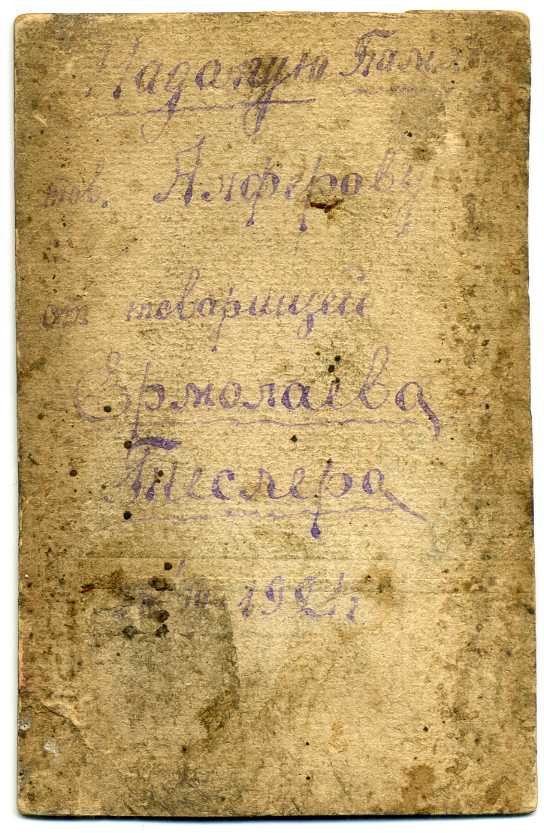 На долгую Память
тов. Алферову
от товарищей
Ермолаева
Теслера
1921г